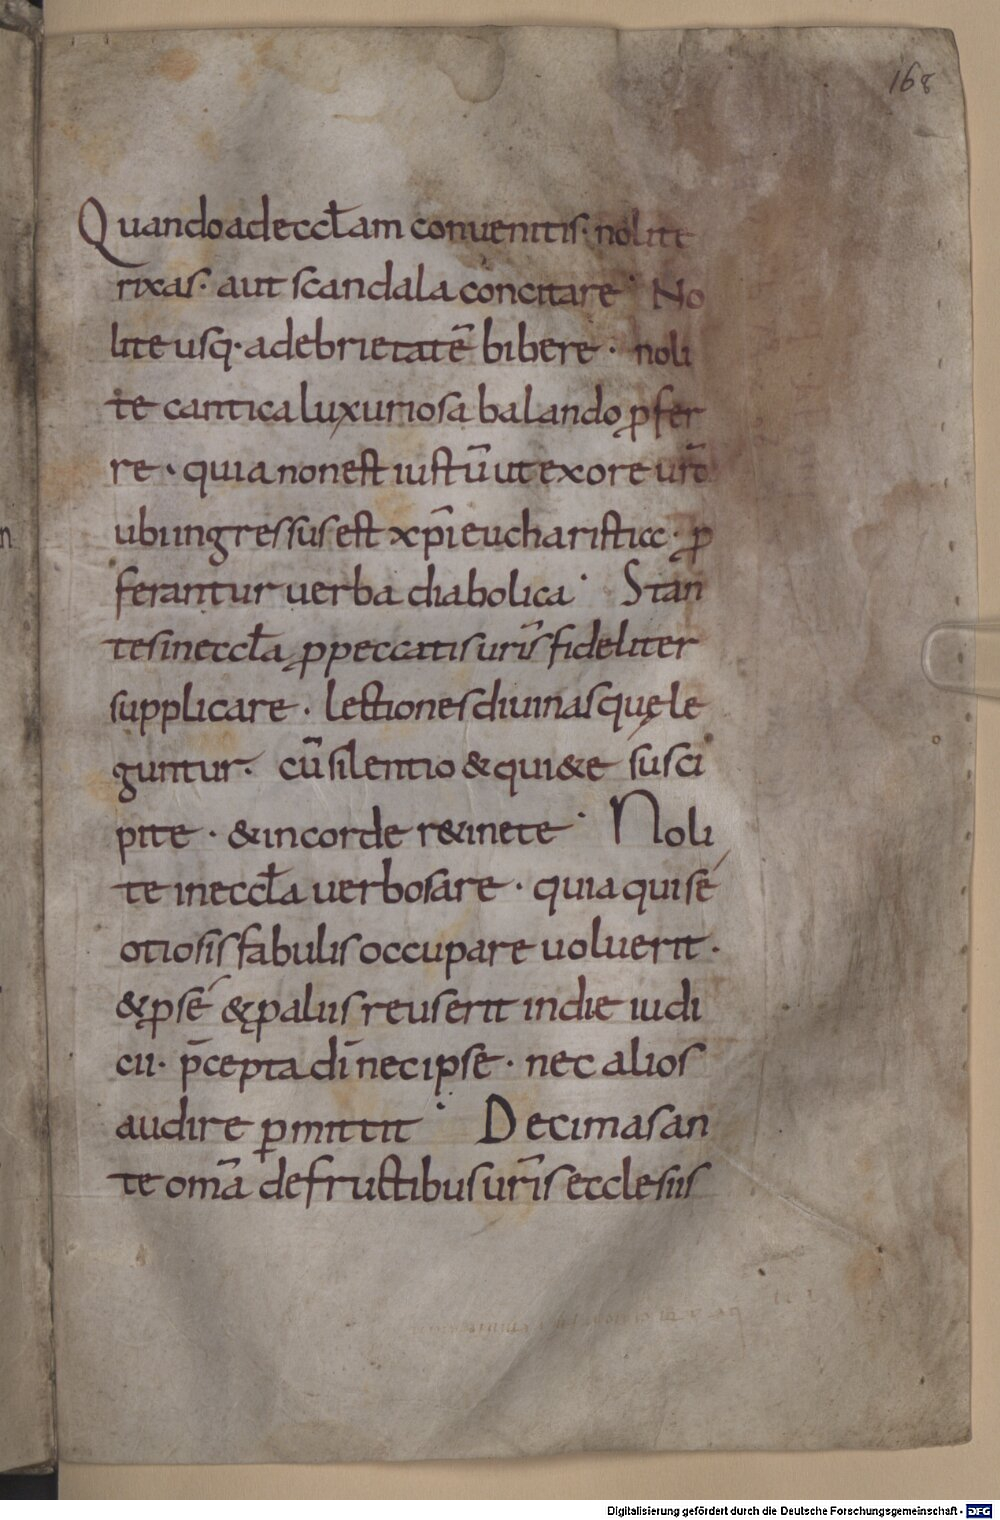 168
Quando ad eccł̄am conuenitis· nolite
rixas· aut scandala concitare· No
lite usq· ad ebrietatē bibere· noli
te cantica luxuriosa balando ꝓfer
re· quia non est iustū ut ex ore uro̅
ubi ingressus est xp̄i eucharisticc· ꝓ
ferantur uerba diabolica· Stan
tes in eccł̄a ꝓ peccatis uris̄ fideliter
supplicare· lectiones diuinas quę le
guntur· cū silentio & qui&e susci
pite· & in corde r&inete· Noli
te in eccł̄a uerbosare· quia qui sé
otiosis fabulis occupare uoluerit·
& ꝓ sé & ꝓ aliis reus erit in die iudi
cii· p̄cepta dī nec ipse· nec alios
audire ꝑmittit· Decimas an
te om̄a de fructibus ur̄is ecclesiis
Digitalisierung gefördert durch die Deutsche Forschungsgemeinschaft - DFG